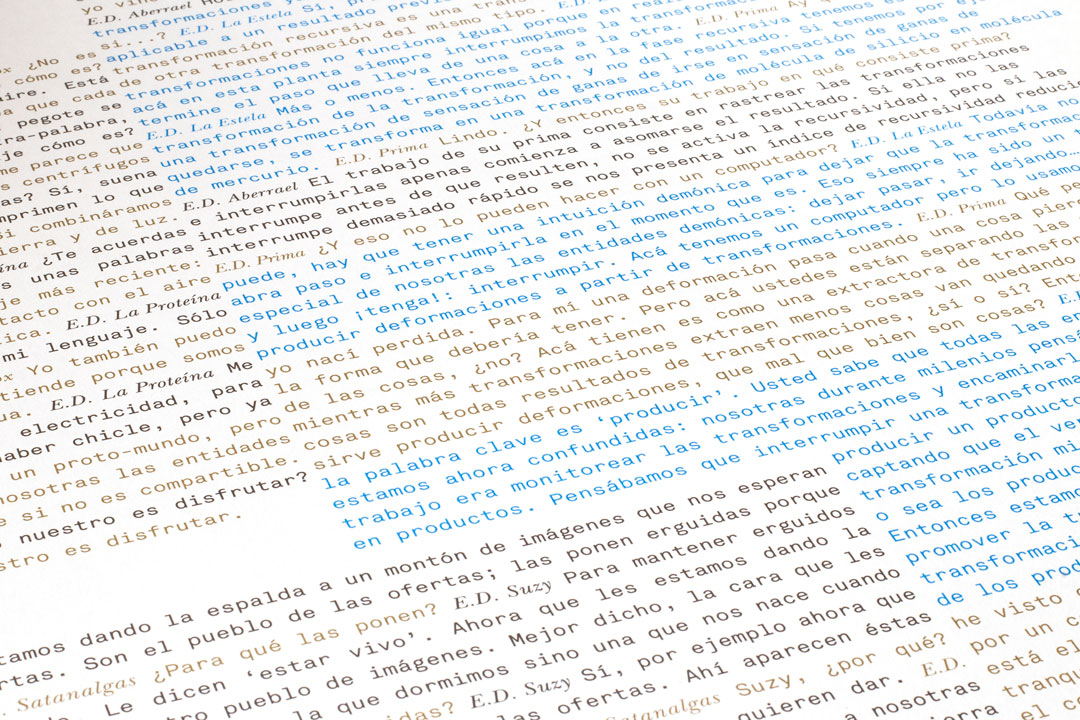 yo vine
¿No es
cómo es?
aire. Está
que cada
pegote se
je cómo es?
me parece que
centrífugos
Sí, suena
lo que
si combináramos
y de luz.
¿Te acuerdas
unas palabras
más reciente:
con el aire
E.D. La Proteína
mi lenguaje. Sólo
Yo también puedo
porque somos
E.D. La Proteína Me
electricidad, para
chicle, pero ya
un proto-mundo, pero
nosotras las entidades
si no es compartible.
nuestro es disfrutar?
es disfrutar.
E.D. Aberrael
transformaciones
si...? E.D. La Estela Sí,
aplicable a un resultado
transformación recursiva es una
de otra transformación del mismo tipo. E.D.
transformaciones no funciona igual porque en
acá en esta planta siempre interrumpimos la
termine el paso que lleva de una cosa a la otra. E.D. Prima Ay
E.D. La Estela Más o menos. Entonces acá en la fase recursiva tenemos
transformación de la transformación, y no del resultado. Si tenemos por
una transformación de sensación de ganas de irse en sensación de ganas de
quedarse, se transforma en una transformación de molécula de silicio en molécula
de mercurio. E.D. Prima Lindo. ¿Y entonces su trabajo en qué consiste prima?
E.D. Aberrael El trabajo de su prima consiste en rastrear las transformaciones
e interrumpirlas apenas comienza a asomarse el resultado. Si ella no las
interrumpe antes de que resulten, no se activa la recursividad, pero si las
interrumpe demasiado rápido se nos presenta un índice de recursividad
E.D. Prima ¿Y eso no lo pueden hacer con un computador? E.D. La Estela Todavía no
puede, hay que tener una intuición demónica para dejar que la
abra paso e interrumpirla en el momento que es. Eso siempre ha sido un
especial de nosotras las entidades demónicas: dejar pasar, ir dejando...
y luego ¡tenga!: interrumpir. Acá tenemos un computador pero lo usamos
producir deformaciones a partir de transformaciones. E.D. Prima Qué
yo nací perdida. Para mí una deformación pasa cuando una cosa
la forma que debería tener. Pero acá ustedes están separando las
de las cosas, ¿no? Acá tienen es como una extractora de
mientras más transformaciones extraen menos cosas van quedando
cosas son todas resultados de transformaciones, ¿sí o sí?
sirve producir deformaciones, que mal que bien son cosas?
la palabra clave es ‘producir’. Usted sabe que todas las
estamos ahora confundidas: nosotras durante milenios
trabajo era monitorear las transformaciones y
en productos. Pensábamos que interrumpir una
producir un
captando que el
transformación
o sea los
Entonces
promover la
de los
dando la espalda a un montón de imágenes que nos esperan
Son el pueblo de las ofertas; las ponen erguidas porque
Satanalgas ¿Para qué las ponen? E.D. Suzy Para mantener erguidos
Le dicen ‘estar vivo’. Ahora que les estamos dando la
pueblo de imágenes. Mejor dicho, la cara que les
la que dormimos sino una que nos nace cuando
E.D. Suzy Sí, por ejemplo ahora que
ofertas. Ahí aparecen éstas
Suzy, ¿por qué? he visto
quieren dar. E.D. por un
a nosotras está